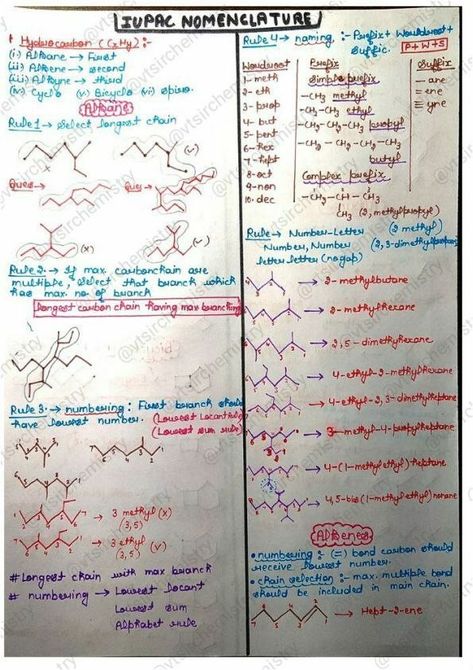 IUPAC NOMENCLATURE
* Hydrocarbon (CxHy) :-
(i) Alkane → First
(ii) Alkene → second
(iii) Alkyne → third
(iv) Cyclo (v) Bicyclo (vi) spiro.
Alkane
Rule 1 → Select longest chain
(x) (✓)
Ques → Ques →
(x) (✓)
Rule 2 → If max. carbon chain are
multiple, select that branch which
has max. no of branch
Longest carbon chain having max branching
Rule 3. → numbering : First branch should
have lowest number. (Lowest Locant Rule)
(Lowest sum rule)
→ 3 methyl (x)
(3,5)
→ 3 ethyl (✓)
(3,5)
# Longest chain with max branch
# numbering → Lowest Locant
Lowest sum
Alphabet rule
Rule 4 → naming :- Prefix + Wordroot +
Suffix. P+W+S
Wordroot Prefix Suffix
1 - meth Simple prefix — ane
2 - eth -CH3 methyl = ene
3 - prop -CH2-CH3 ethyl ≡ yne
4 - but -CH2-CH2-CH3 propyl
5 - pent -CH2-CH2-CH2-CH3
6 - Hex butyl
7 - Hept
8 - oct Complex prefix
9 - non -CH2-CH-CH3
10 - dec CH3 (2, methylpropyl)
Rule → Number-Letter (2 methyl)
Number, Number (2,3-dimethyl
letter letter (no gap)
→ 2-methylbutane
→ 2-methylhexane
→ 2,5-dimethylhexane
→ 4-ethyl-2-methylhexane
→ 4-ethyl-2,3-dimethylheptane
→ 3-methyl-4-propylheptane
→ 4-(1-methylethyl)heptane
→ 4,5-bis(1-methylethyl)nonane
Alkenes
• numbering :- (=) bond carbon should
receive lowest number.
• chain selection :- max. multiple bond
should be included in main chain.
→ Hept-2-ene
@vtsirchemistry